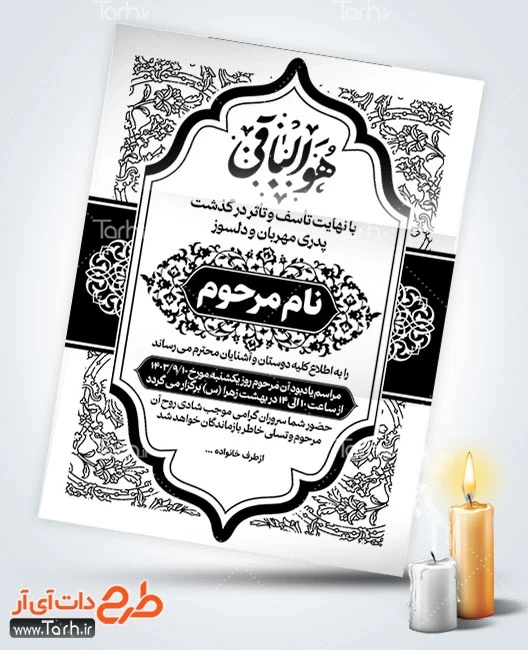 هو الباقی
با نهایت تأسف و تأثر درگذشت
پدری مهربان و دلسوز
نام مرحوم
را به اطلاع کلیه دوستان و آشنایان محترم می رساند
مراسم یادبود آن مرحوم روز یکشنبه مورخ ۱۴۰۳/۹/۱۰
از ساعت ۱۰ الی ۱۴ در بهشت زهرا (س) برگزار می گردد
حضور شما سروران گرامی موجب شادی روح آن
مرحوم و تسلی خاطر بازماندگان خواهد شد
از طرف خانواده ...
طرح دات آی آر
www.Tarh.ir
Tarh.ir
Tarh.ir
Tarh.ir